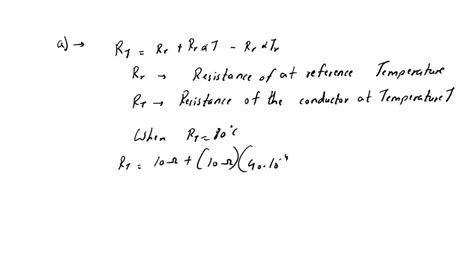 a) → R_T = R_r + R_r α T - R_r α T_r
R_r → Resistance of at reference Temperature
R_T → Resistance of the conductor at Temperature T
When R_T = 80°C
R_T = 10 Ω + (10 Ω)(40.10⁻⁴